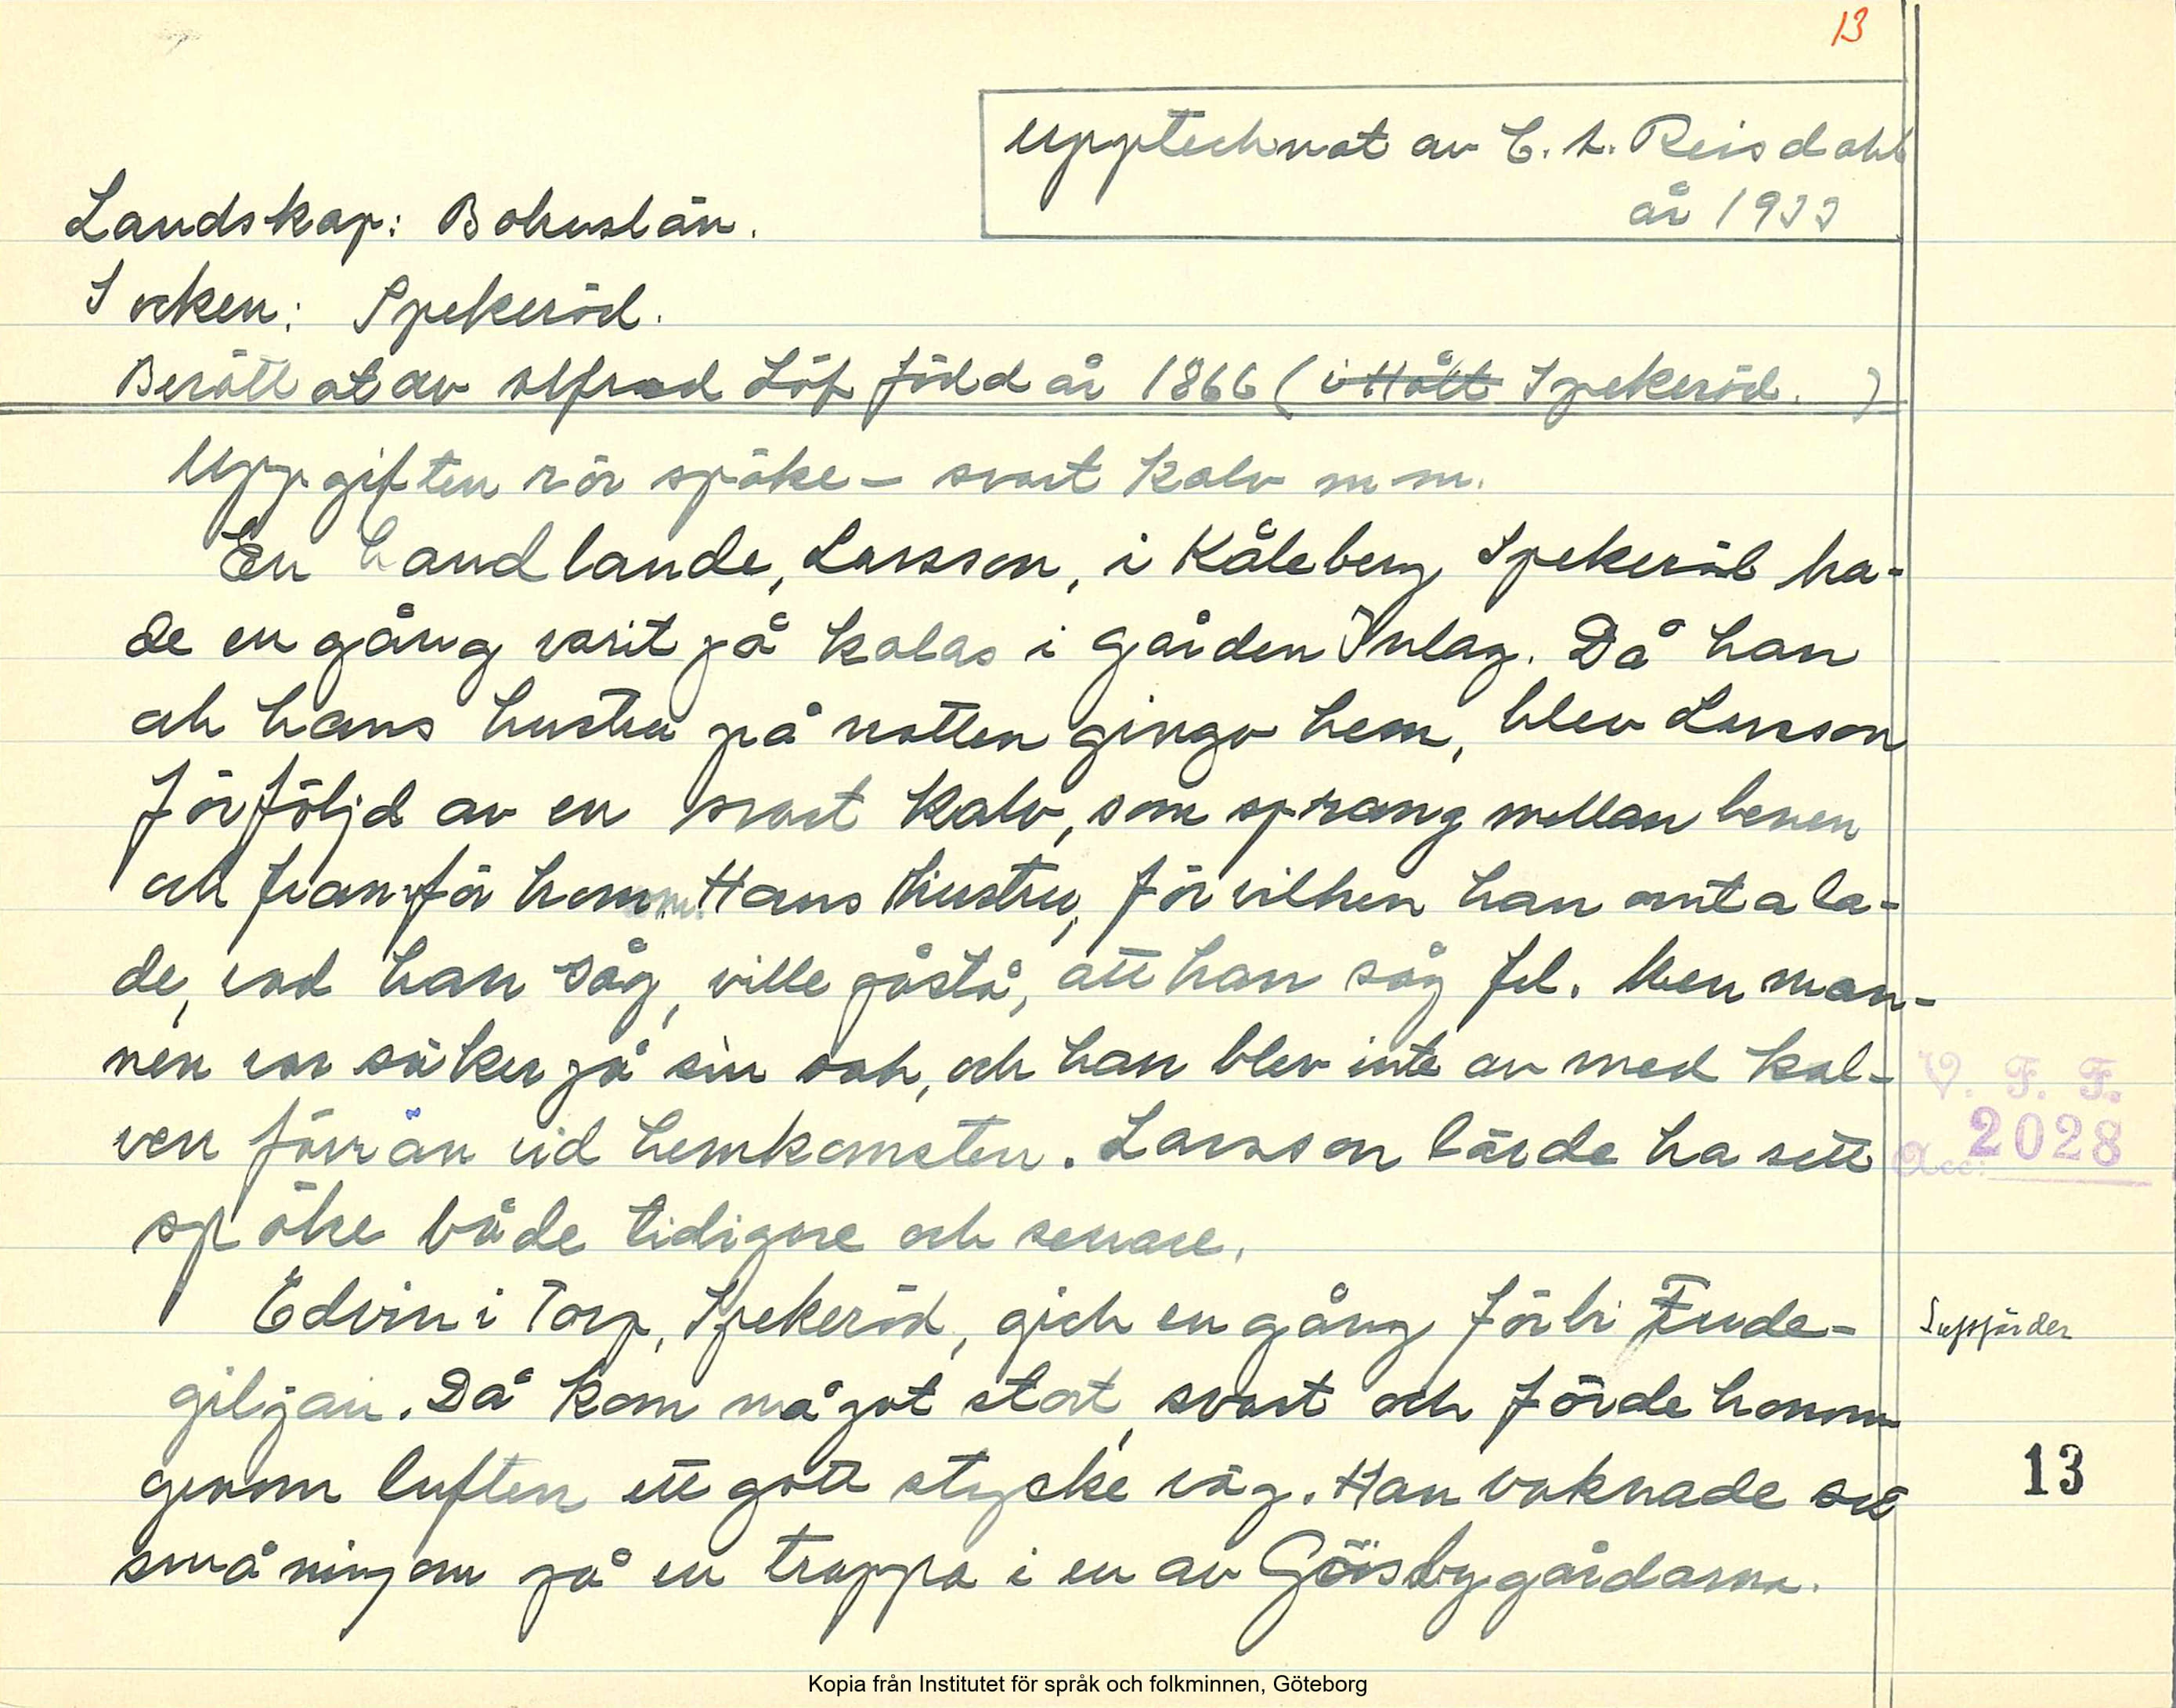 13
Upptecknat av C. L. Reisdahl
år 1933
Landskap: Bohuslän.
Socken: Spekeröd.
Berättat av Alfred Löf född år 1866 (i Hått Spekeröd. )
Uppgiften rör spöke - svart kalv m m.
En handlande, Larsson, i Kåleberg Spekeröd ha-
de en gång varit på kalas i gården Inlag. Då han
och hans hustru på natten gingo hem, blev Larsson
förföljd av en svart kalv, som sprang mellan benen
och framför honom. Hans hustru, för vilken han omtala-
de, vad han såg, ville påstå, att han såg fel. Men man-
nen var säker på sin sak, och han blev inte av med kal-
ven förrän vid hemkomsten. Larsson lärde ha sett
spöke både tidigare och senare.
Edvin i Torp, Spekeröd, gick en gång förbi Fude-
giljan. Då kom något stort, svart och förde honom
genom luften ett gott stycke väg. Han vaknade så
småningom på en trappa i en av Gösbygårdarna.
V. F. F.
Acc: 2028
Luftfärder
13
Kopia från Institutet för språk och folkminnen, Göteborg